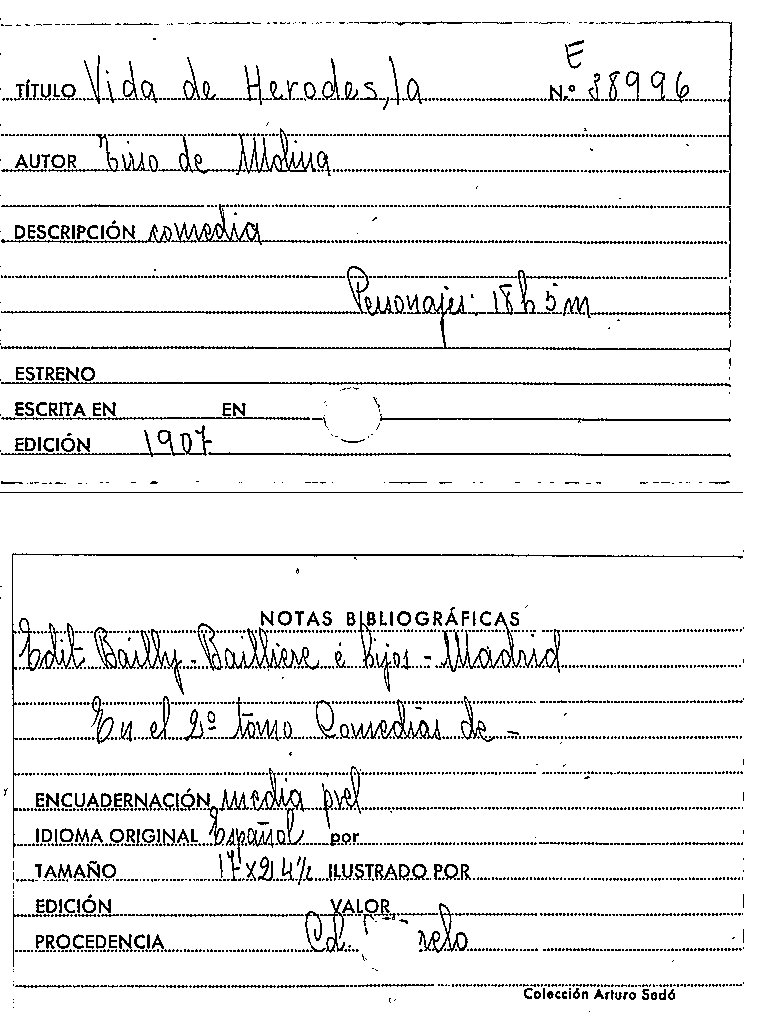 E
TÍTULO Vida de Herodes, la N.º 38996
AUTOR Tirso de Molina
DESCRIPCIÓN comedia
Personajes: 18 h 5 m
ESTRENO
ESCRITA EN EN
EDICIÓN 1907
NOTAS BIBLIOGRÁFICAS
Edit Bailly-Bailliere é hijos - Madrid
En el 2º tomo Comedias de -
ENCUADERNACIÓN media piel
IDIOMA ORIGINAL Español por
TAMAÑO 17x24½ ILUSTRADO POR
EDICIÓN VALOR
PROCEDENCIA Col.
Colección Arturo Sedó